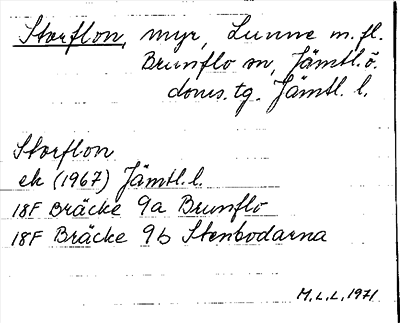 Storflon, myr, Lunne m.fl.
Brunflo sn, Jämtl.ö.
doms.tg. Jämtl. l.
Storflon
ek (1967) Jämtl.l.
18F Bräcke 9a Brunflo
18F Bräcke 9b Stenbodarna
M.L.L. 1971